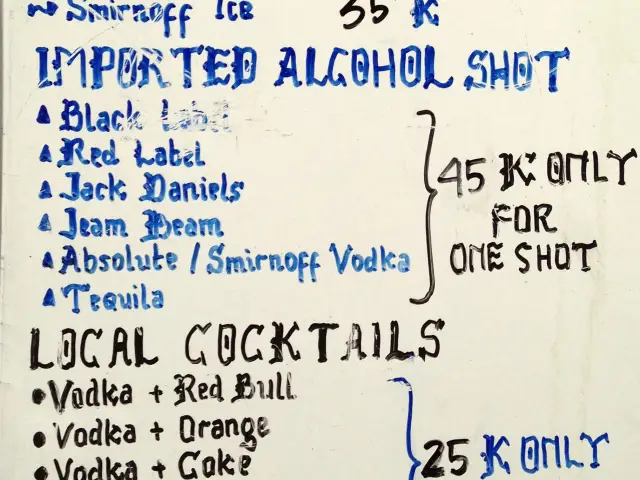 Smirnoff Ice 35 K
IMPORTED ALCOHOL SHOT
Black Label
Red Label
Jack Daniels
Jeam Beam
Absolute / Smirnoff Vodka
Tequila
45 K ONLY
FOR
ONE SHOT
LOCAL COCKTAILS
Vodka + Red Bull
Vodka + Orange
Vodka + Coke
25 K ONLY